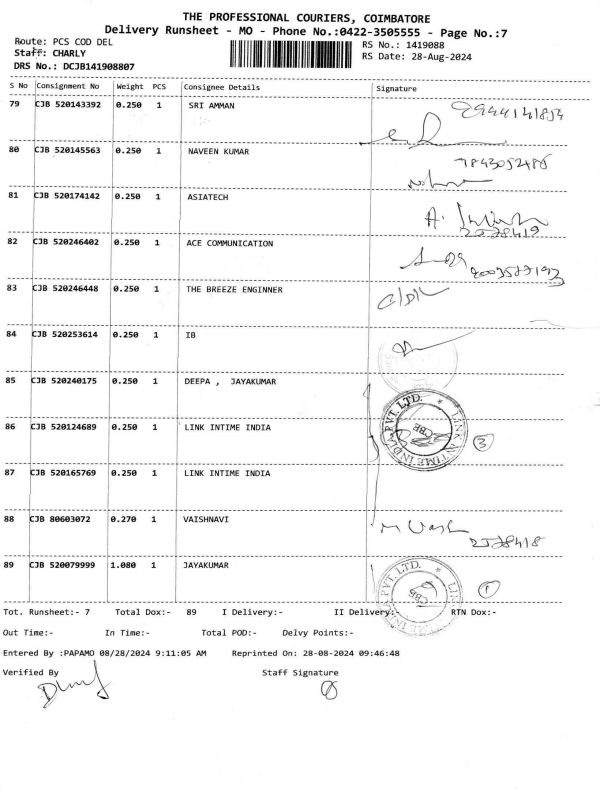 THE PROFESSIONAL COURIERS, COIMBATORE
Delivery Runsheet - MO - Phone No.:0422-3505555 - Page No.:7
Route: PCS COD DEL
RS No.: 1419088
Staff: CHARLY
RS Date: 28-Aug-2024
DRS No.: DCJB141908807
S No Consignment No Weight PCS Consignee Details Signature
79 CJB 520143392 0.250 1 SRI AMMAN
80 CJB 520145563 0.250 1 NAVEEN KUMAR
81 CJB 520174142 0.250 1 ASIATECH
82 CJB 520246402 0.250 1 ACE COMMUNICATION
83 CJB 520246448 0.250 1 THE BREEZE ENGINNER
84 CJB 520253614 0.250 1 IB
85 CJB 520240175 0.250 1 DEEPA , JAYAKUMAR
LINK INTIME INDIA PVT. LTD. * CBE
86 CJB 520124689 0.250 1 LINK INTIME INDIA
3
87 CJB 520165769 0.250 1 LINK INTIME INDIA
88 CJB 80603072 0.270 1 VAISHNAVI
89 CJB 520079999 1.080 1 JAYAKUMAR
1
Tot. Runsheet:- 7 Total Dox:- 89 I Delivery:- II Delivery:- RTN Dox:-
Out Time:- In Time:- Total POD:- Delvy Points:-
Entered By :PAPAMO 08/28/2024 9:11:05 AM Reprinted On: 28-08-2024 09:46:48
Verified By Staff Signature